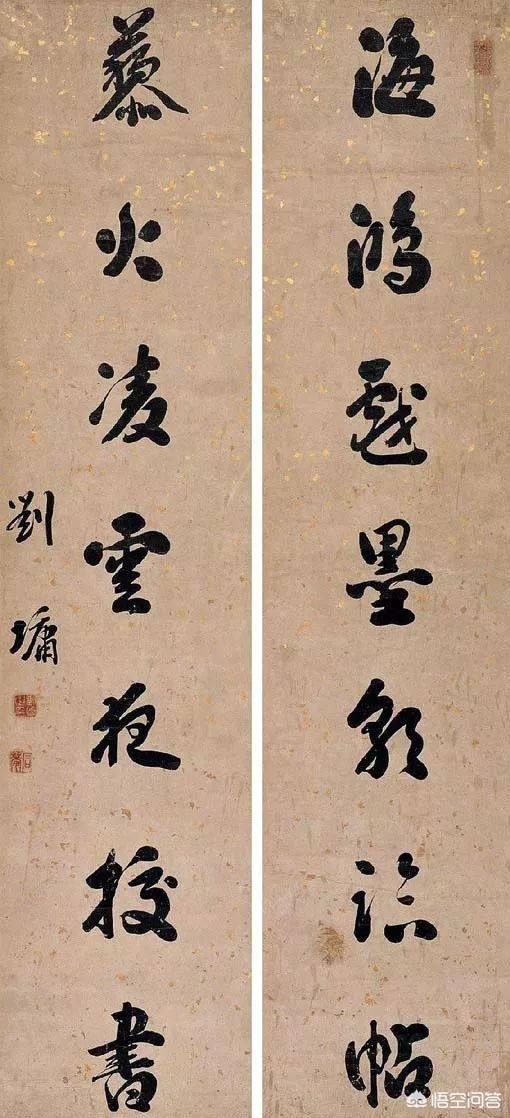 海鴻戲墨朝臨帖
藜火凌雲夜校書
劉墉
悟空问答